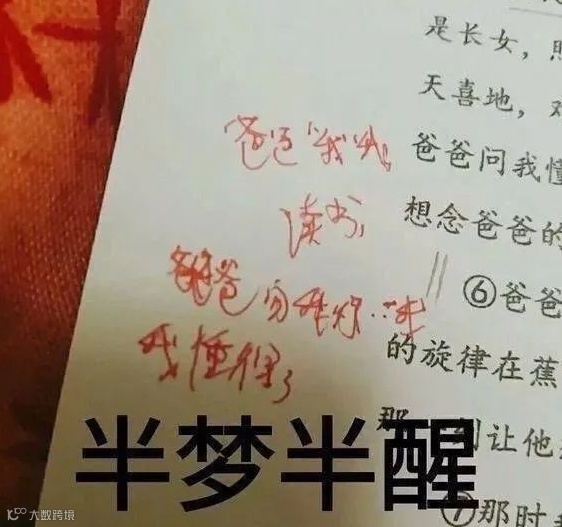 是长女，
天喜地，
爸爸问我
想念爸爸的
⑥爸爸
的旋律在蕉
那一刻让他
⑦那时
爸爸
读书
爸爸
我懂得
半梦半醒
大数跨境